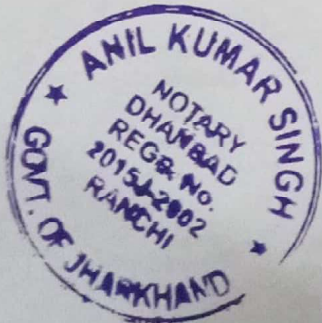 ★ ANIL KUMAR SINGH ★
GOVT. OF JHARKHAND
NOTARY
DHANBAD
REGD. No.
RANCHI